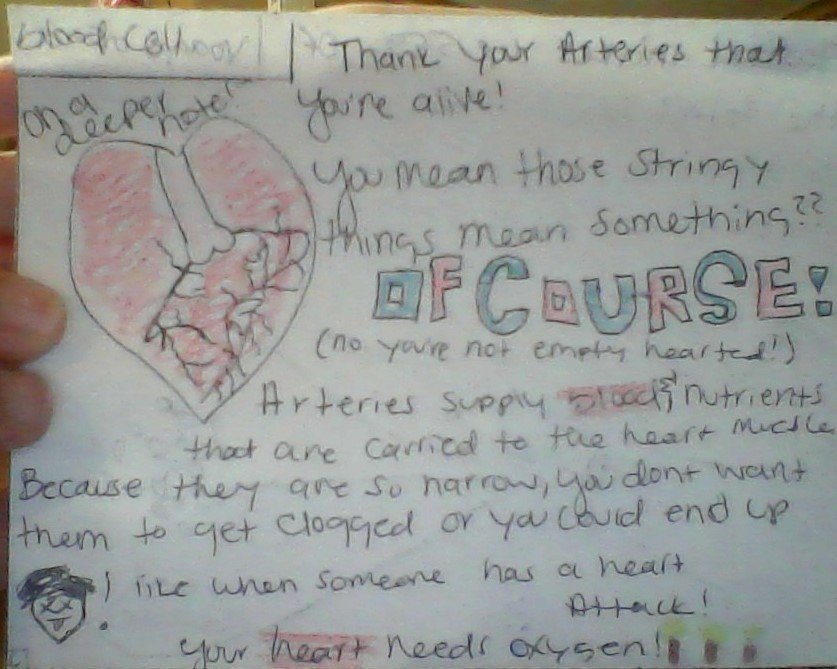 Thank Your Arteries that
you're alive!
on a
deeper note!
You mean those stringy
things mean something??
OF COURSE!
(no you're not empty hearted!)
Arteries supply blood & nutrients
that are carried to the heart muscle
Because they are so narrow, you dont want
them to get clogged or you could end up
! like when someone has a heart
Attack!
your heart needs oxygen!!!!